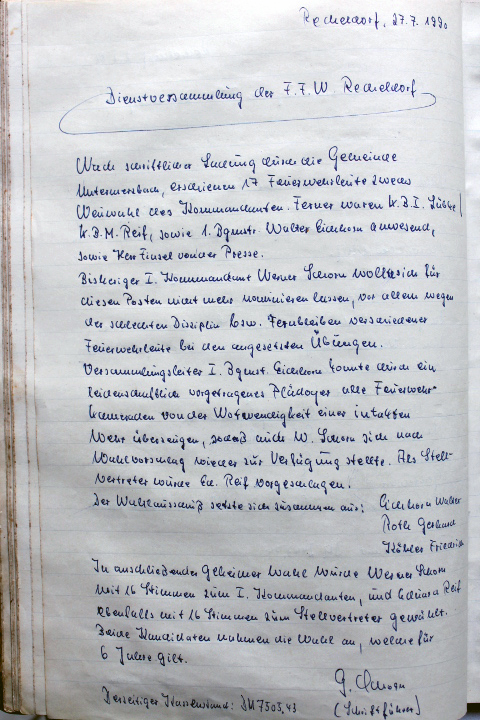 Recheldorf, 27.7.1990
Dienstversammlung der F.F.W. Recheldorf
Nach schriftlicher Ladung durch die Gemeinde
Untermerzbach, erschienen 17 Feuerwehrleute zwecks
Neuwahl des Kommandanten. Ferner waren K.B.I. Lübke,
K.B.M. Reif, sowie 1. Bgmst. Walter Eichhorn anwesend,
sowie Herr Finsel von der Presse.
Bisheriger I. Kommandant Werner Schorn wollte sich für
diesen Posten nicht mehr nominieren lassen, vor allem wegen
der schlechten Disziplin bzw. Fernbleiben verschiedener
Feuerwehrleute bei den angesetzten Übungen.
Versammlungsleiter I. Bgmst. Eichhorn konnte durch ein
leidenschaftlich vorgetragenes Plädoyer alle Feuerwehr-
kameraden von der Notwendigkeit einer intakten
Wehr überzeugen, sodaß auch W. Schorn sich nach
Wahlvorschlag wieder zur Verfügung stellte. Als Stell-
vertreter wurde Ed. Reif vorgeschlagen.
Der Wahlausschuß setzte sich zusammen aus: Eichhorn Walter
Roth Gerhard
Kübler Friedrich
In anschließender geheimer Wahl wurde Werner Schorn
mit 16 Stimmen zum I. Kommandanten, und Eduard Reif
ebenfalls mit 16 Stimmen zum Stellvertreter gewählt.
Beide Kandidaten nahmen die Wahl an, welche für
6 Jahre gilt.
G. Schorn
(Schriftführer)
Derzeitiger Kassenstand: DM 7505,43